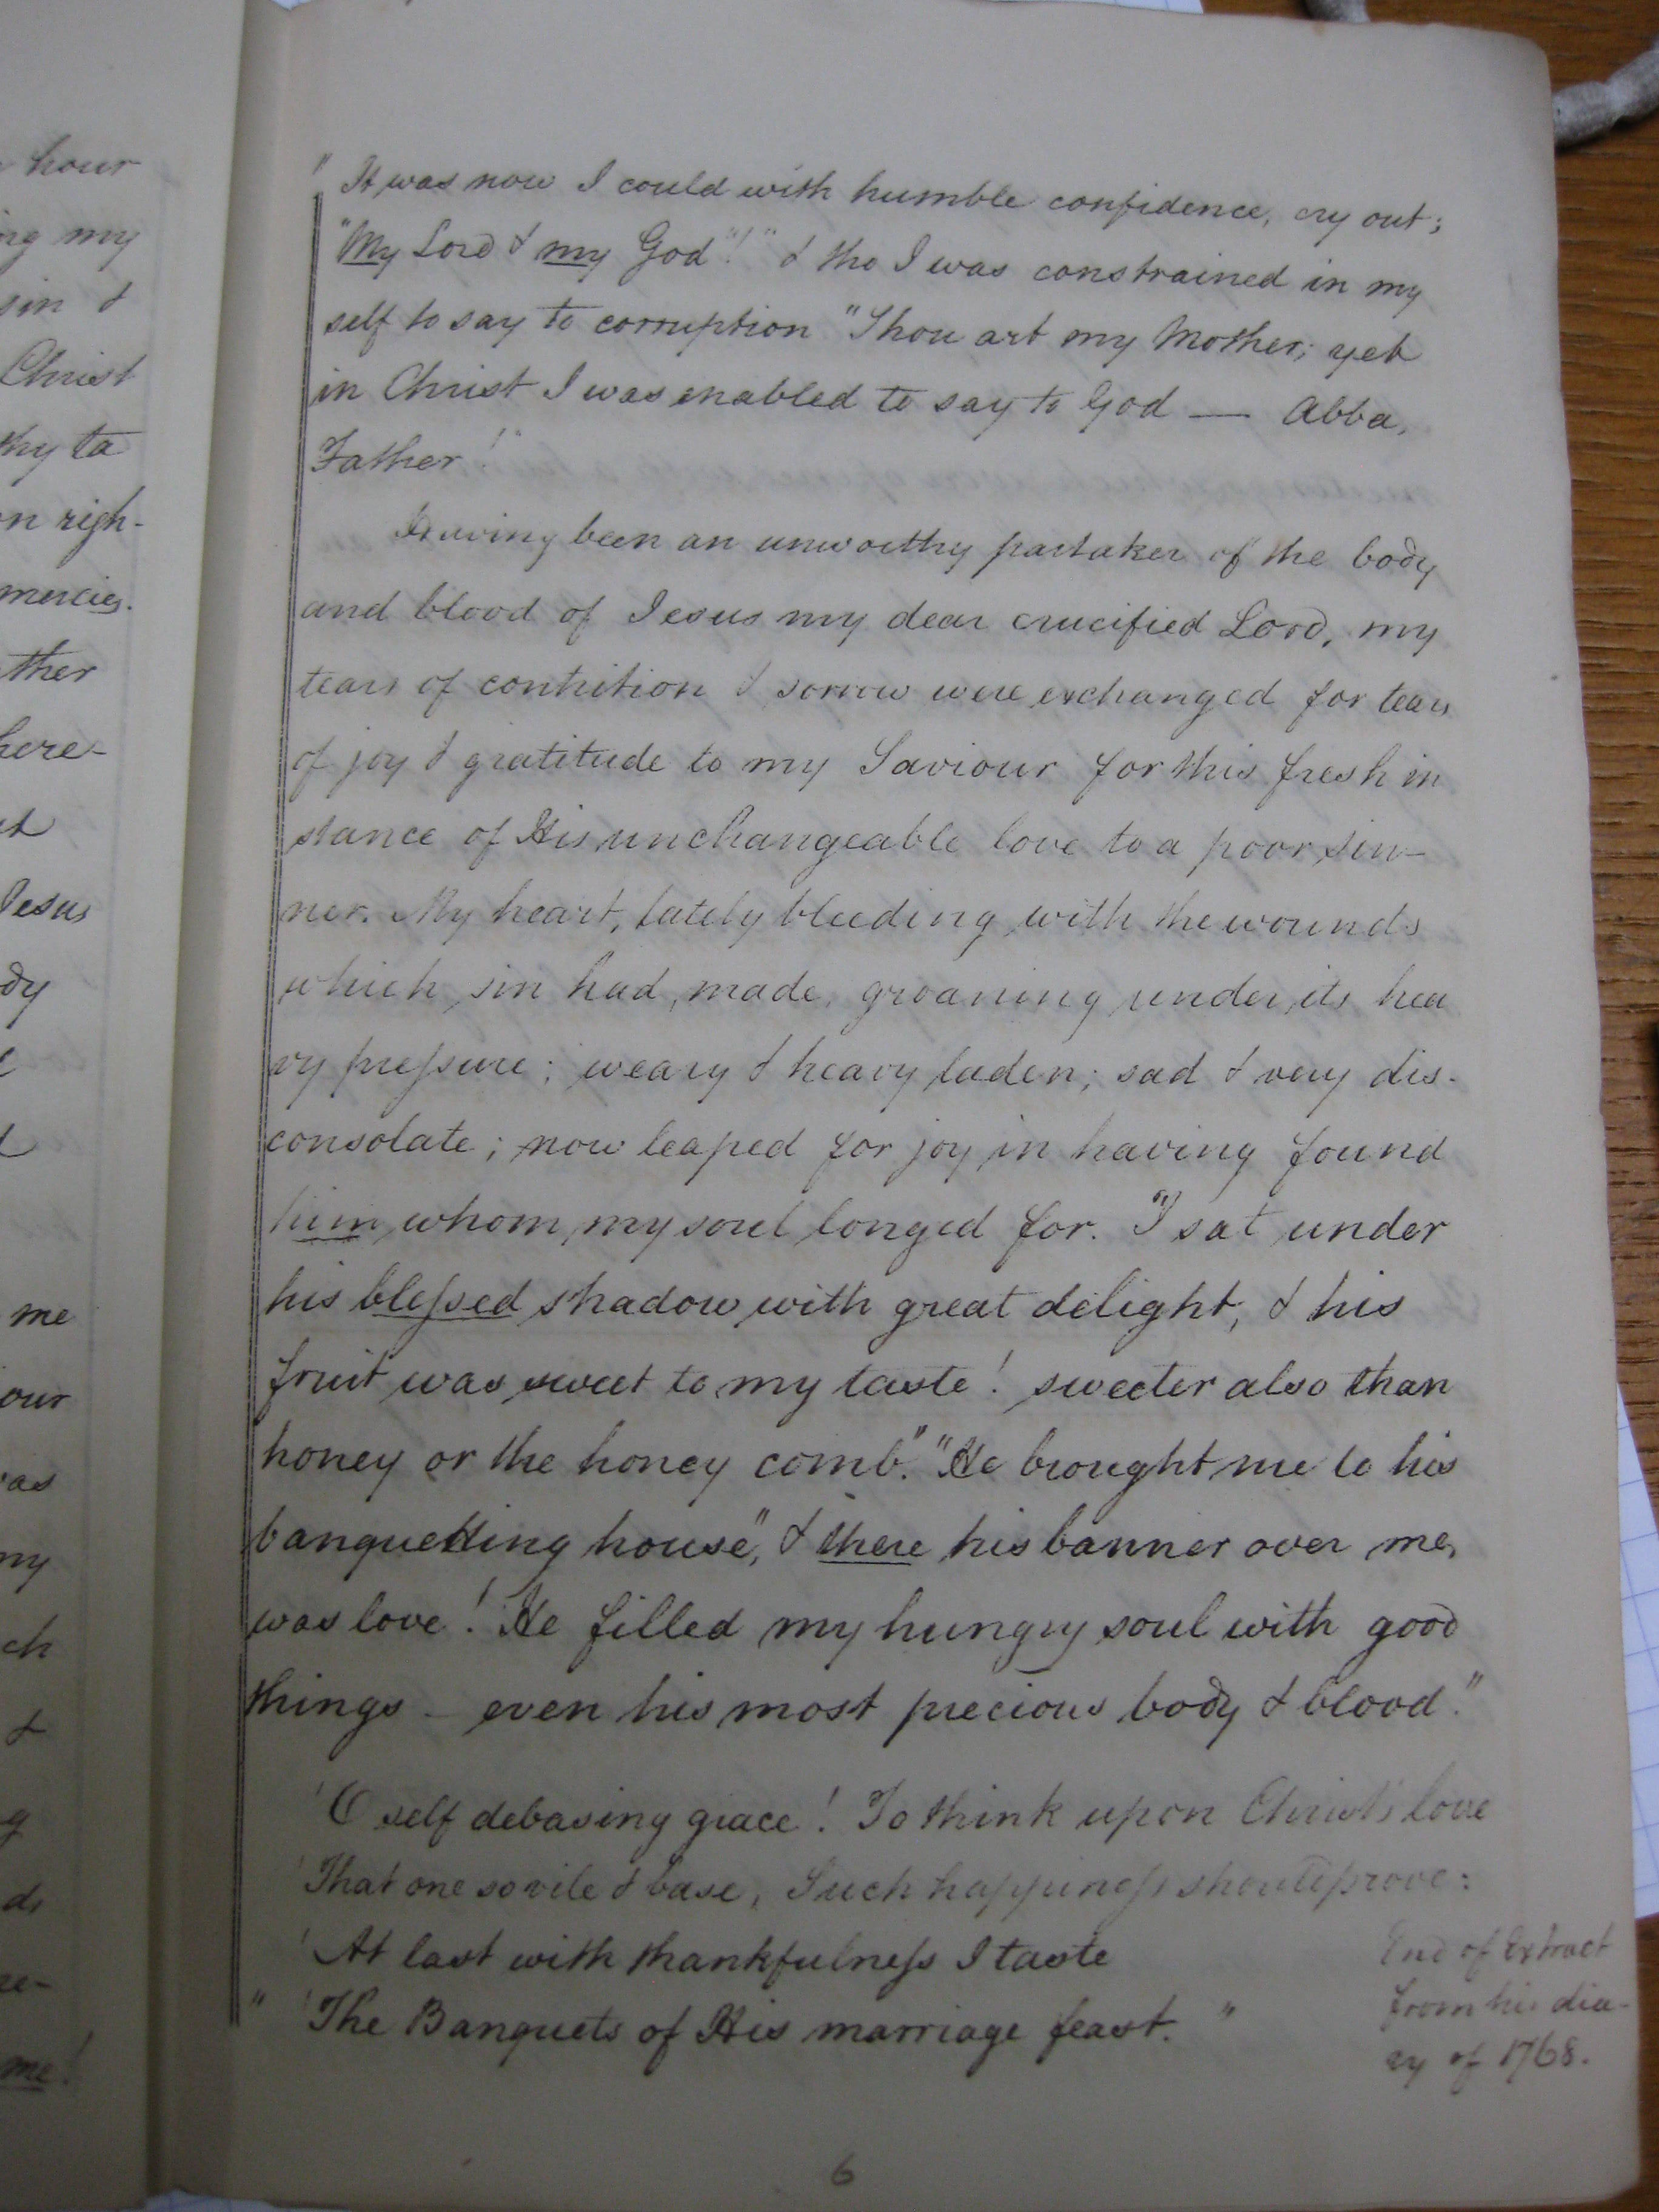 hour
ng my
sin &
Christ
thy to
on righ-
mercies.
ther
here-
Jesus
dy
me
our
as
my
ch
&
g
me!
" It was now I could with humble confidence, cry out;
"My Lord & my God"!" & tho I was constrained in my
self to say to corruption "Thou art my Mother; yet
in Christ I was enabled to say to God — Abba,
Father!"
Having been an unworthy partaker of the body
and blood of Jesus my dear crucified Lord, my
tears of contrition & sorrow were exchanged for tears
of joy & gratitude to my Saviour for this fresh in
stance of His unchangeable love to a poor sin-
ner. My heart, lately bleeding with the wounds
which sin had made, groaning under its hea
vy preſsure; weary & heavy laden; sad & very dis-
consolate; now leaped for joy in having found
him whom my soul longed for. "I sat under
his bleſsed shadow with great delight, & his
fruit was sweet to my taste! sweeter also than
honey or the honey comb". "He brought me to his
banquetting house", & there his banner over me,
was love! He filled my hungry soul with good
things – even his most precious body & blood."
'O self debasing grace! To think upon Christ's love
'That one so vile & base, Such happineſs should prove:
'At last with thankfulneſs I taste
" 'The Banquets of His marriage feast. "
End of Extract
from his dia-
ry of 1768.
6